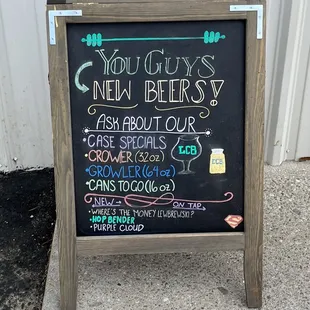 YOU GUYS
NEW BEERS!
ASK ABOUT OUR
• CASE SPECIALS
• CROWER (32oz)
• GROWLER (64oz)
• CANS TO GO (16oz)
LCB
LCB
NEW → ON TAP
• WHERE'S THE MONEY LEWBREWSKI?
• HOP BENDER
• PURPLE CLOUD